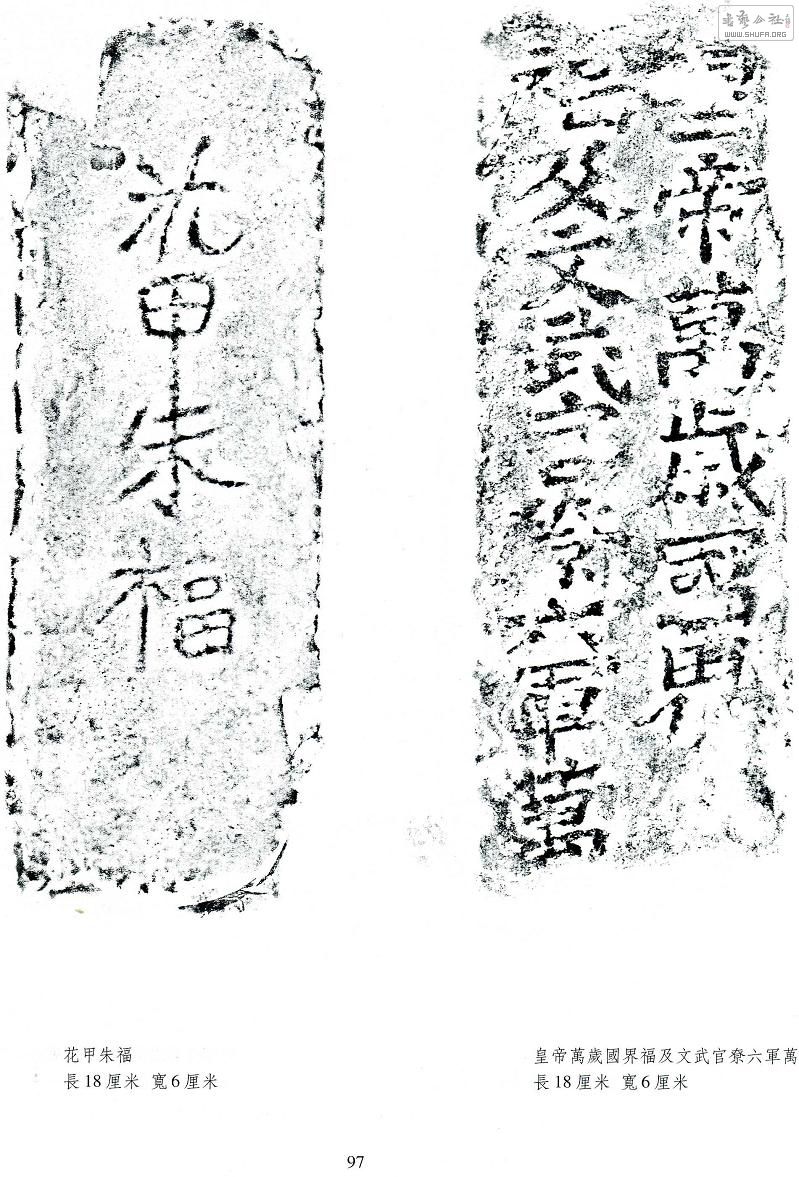 书艺公社
WWW.SHUFA.ORG
花甲朱福
皇帝萬歲國界
福及文武官尞六軍萬
花甲朱福
長18厘米 寬6厘米
皇帝萬歲國界福及文武官尞六軍萬
長18厘米 寬6厘米
97